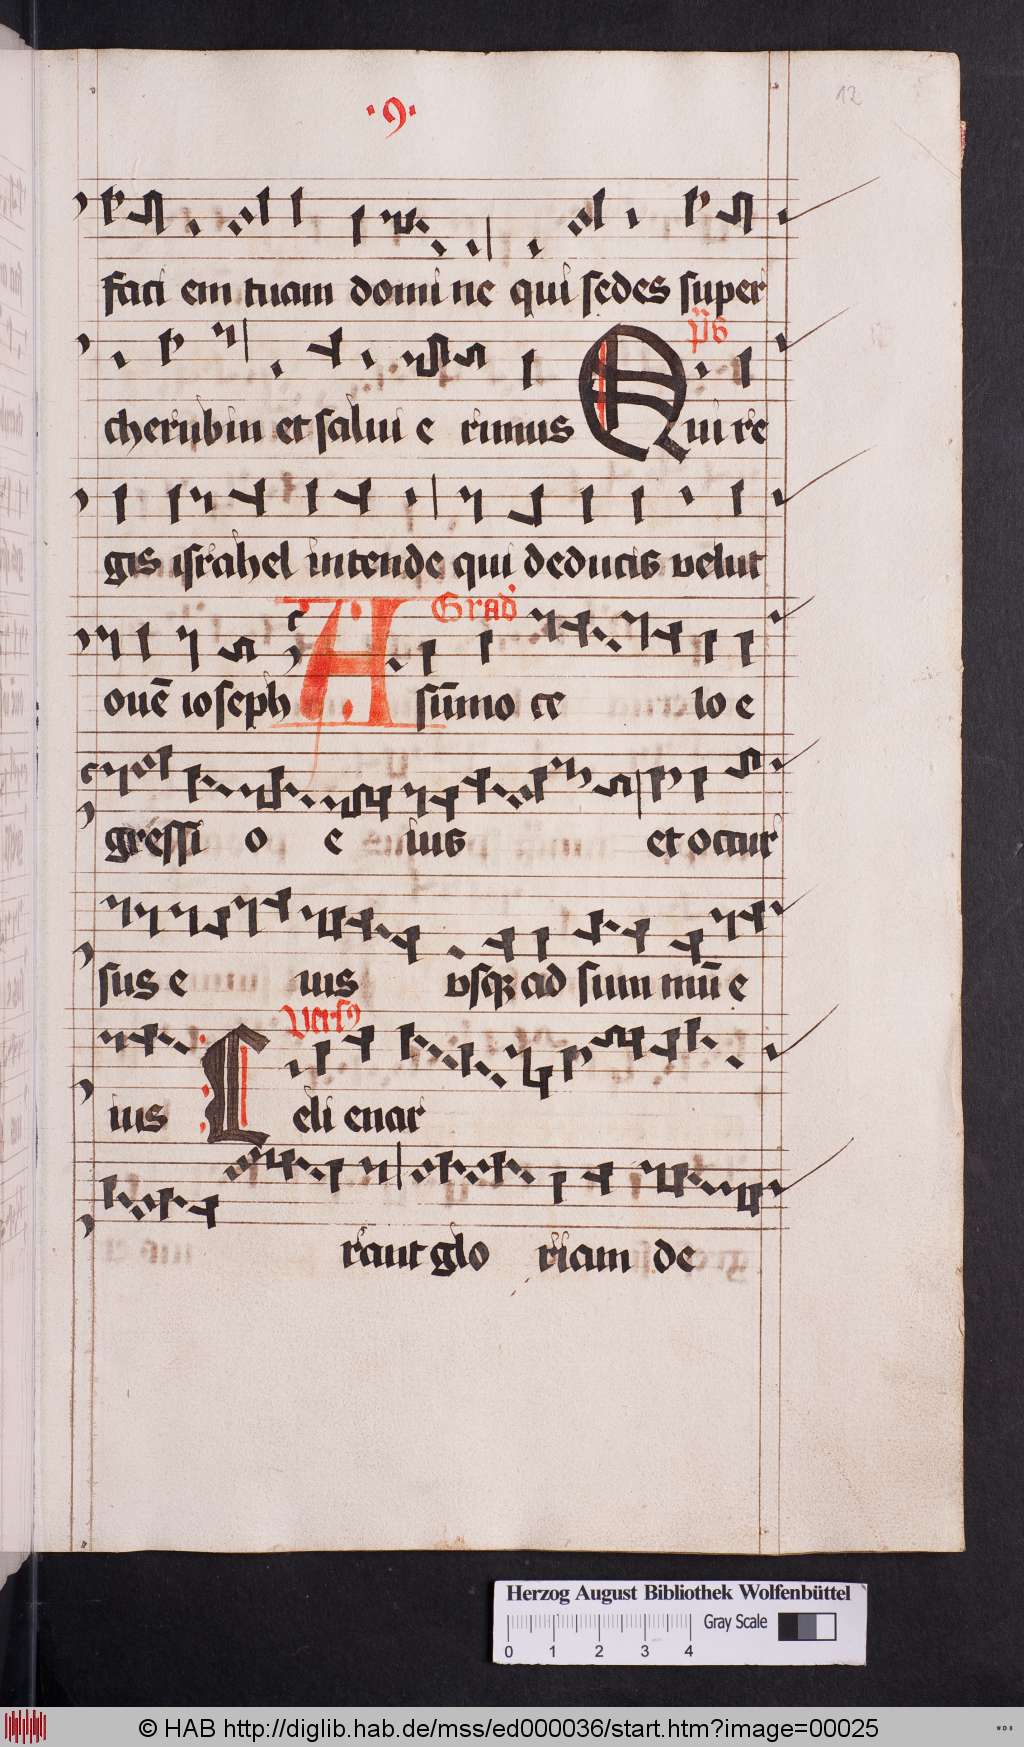 ·9·
12
faci em tuam domi ne qui sedes super
p̄s
cherubin et salui e rimus Qui re
gis israhel intende qui deducis velut
Grad'
ouē ioseph A sūmo ce lo e
gressi o e ius et occur
sus e ius vsq; ad sum mū e
Versꝰ
ius Celi enar
rant glo riam de
Herzog August Bibliothek Wolfenbüttel
Gray Scale
0 1 2 3 4
© HAB http://diglib.hab.de/mss/ed000036/start.htm?image=00025